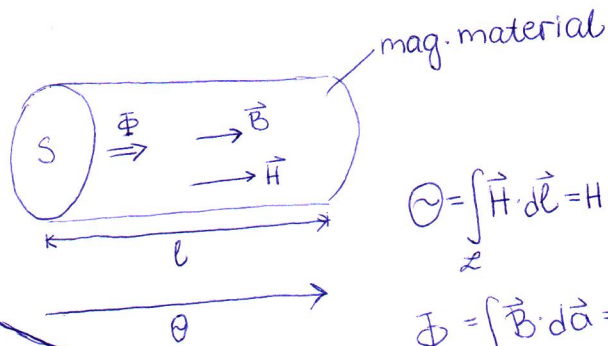 mag. material
S
Φ
B⃗
H⃗
l
Θ
Θ = ∫ H⃗ · dl⃗ = H
ℒ
Φ = ∫ B⃗ · da⃗ =